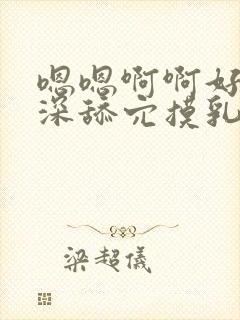 嗯嗯啊啊好
深舔穴摸乳
梁超儀